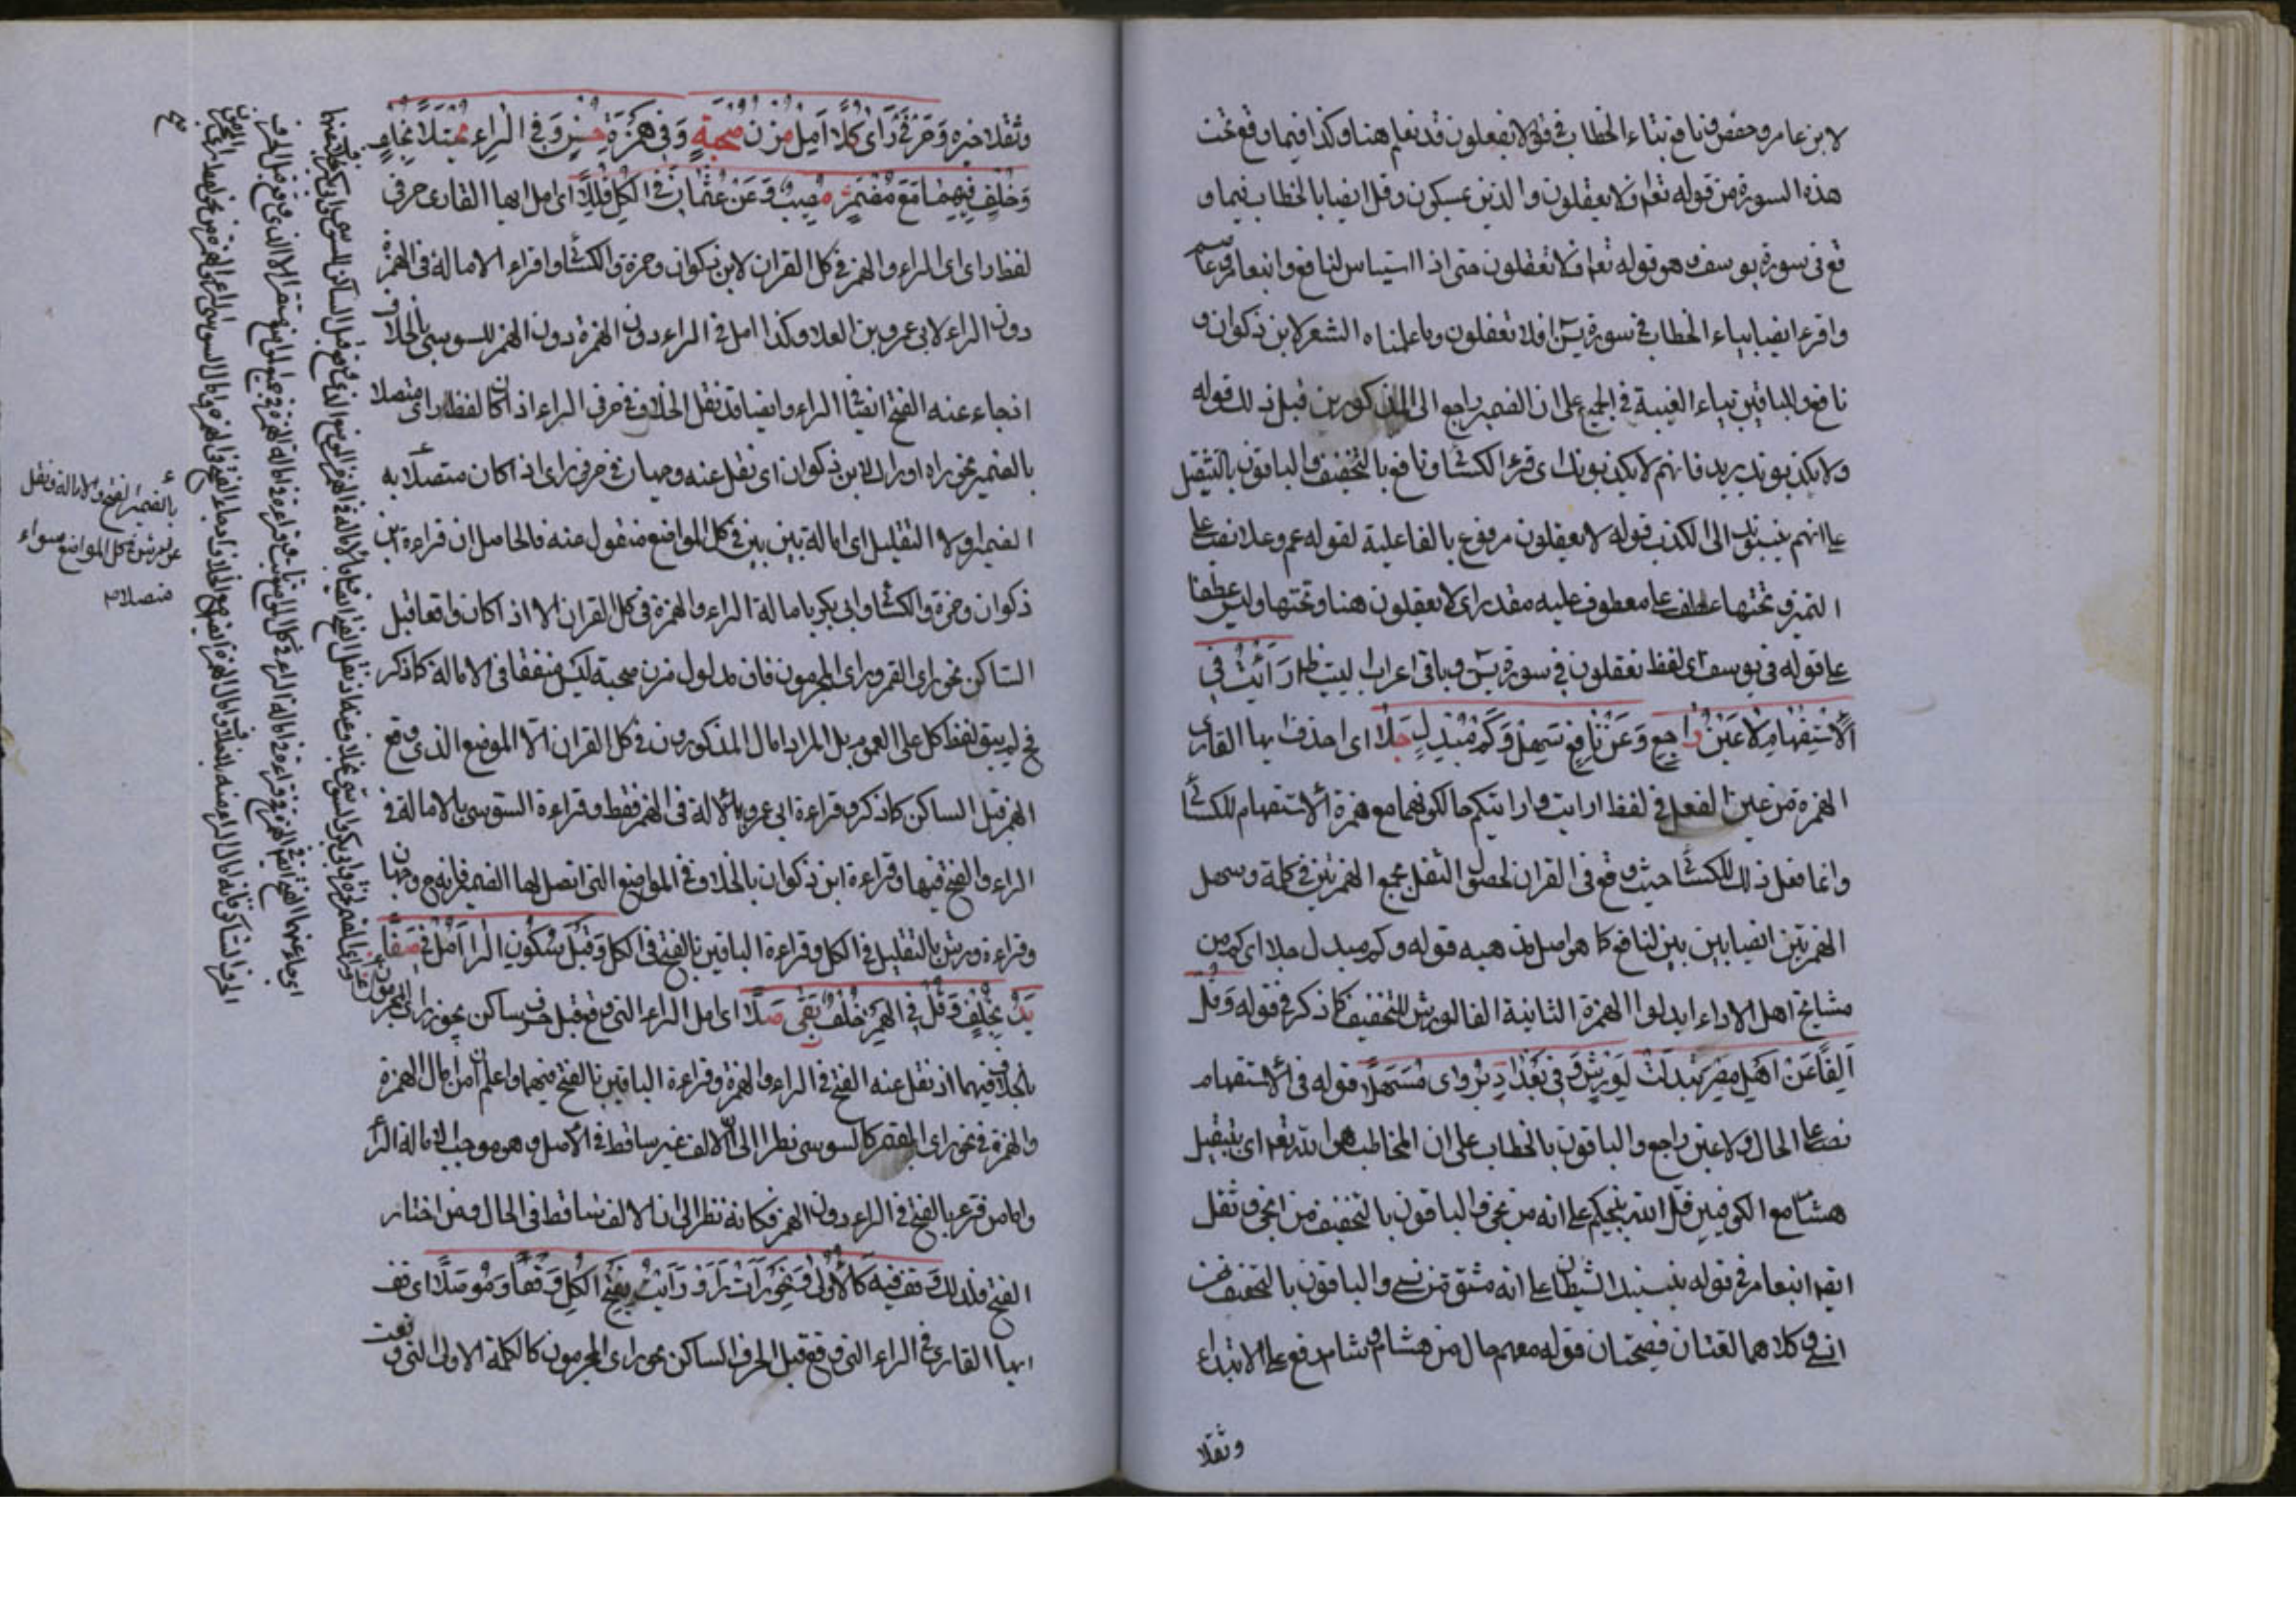 لابن عامر وحفص ونافع بتاء الخطاب في قوله لا يعقلون قد نعلم هنا وكذا فيما وقع تحت
هذه السورة من قوله تعالى افلا يعقلون والذين يمسكون وقل ايضا بالخطاب فيما و
قع في سورة يوسف وهو قوله تعالى افلا تعقلون حتى اذا استيأس لنافع وابن عامر وعاصم
واقرء ايضا بتاء الخطاب في سورة يس افلا تعقلون وما علمناه الشعر لابن ذكوان و
نافع وللباقين بياء الغيبة في الجميع على ان الضمير راجع الى المذكورين قبل ذلك قوله
ولا يكذبونك يريد فانهم لا يكذبونك اى قرء الكسائي ونافع بالتخفيف والباقون بالتثقيل
على انهم ينسبونك الى الكذب قوله لا يعقلون مرفوع بالفاعلية لقوله عم وعلا نصب على
التميز وتحتها عطف على معطوف عليه مقدر اى لا يعقلون هنا وتحتها وليس عطفا
على قوله في يوسف اى لفظ تعقلون في سورة يس وباقى اعراب البيت ظاهر رَأَيْتَ فِي
الْاِسْتِفْهَامِ لَا عَيْنَ رَاجِعٌ وَعَنْ نَافِعٍ سَهِّلْ وَكَمْ مُبْدِلٍ جَلَا اى احذف ايها القارى
الهمزة من عين الفعل في لفظ ارايت وارايتكم حال كونهما مع همزة الاستفهام للكسائي
وانما فعل ذلك للكسائي حيث وقع في القران لحصول الثقل بجمع الهمزتين في كلمة وسهل
الهمزتين ايضا بين بين لنافع كما هو اصل مذهبه قوله وكم مبدل جلا اى كم من
مشايخ اهل الاداء ابدلوا الهمزة الثانية الفا لورش للتخفيف كما ذكر في قوله وَقُلْ
اَلِفًا عَنْ اَهْلِ مِصْرَ تَبَدَّلَتْ لِوَرْشٍ وَفِي بَغْدَادَ يُرْوَى مُسَهَّلًا قوله في الاستفهام
نصب على الحال ولا عين راجع والباقون بالخطاب على ان المخاطب هو الله تعالى اى بتثقيل
هشام مع الكوفيين قل الله ينجيكم على انه من نجى والباقون بالتخفيف من انجى وثقل
ايضا ابن عامر في قوله ينسينك الشيطان على انه مشتق من نسى والباقون بالتخفيف من
انسى وكلاهما لغتان فصيحتان قوله معهم حال من هشام وشام رفع على الابتداء
وثقلا
وثقلا خبره وَحَرْفَيْ رَأَى كُلًّا اَمِلْ مُزْنَ صُحْبَةٍ وَفِي هَمْزِهِ حُسْنٌ وَفِي الرَّاءِ يُجْتَلَا بِخُلْفٍ
وَخُلْفٌ فِيهِمَا مَعَ مُضْمَرٍ مُصِيبٌ وَعَنْ عُثْمَانَ فِي الْكُلِّ قَلِّلَا اى امل ايها القارى حرفى
لفظ راى اى الراء والهمز في كل القران لابن ذكوان وحمزة والكسائي واقراء الامالة في الهمزة
دون الراء لابى عمرو بن العلا وكذا امل في الراء دون الهمزة دون الهمز للسوسى بالخلاف
اذ جاء عنه الفتح ايضا في الراء وايضا قد نقل الخلاف في حرفى الراء اذا كان لفظ راى متصلا
بالضمير نحو راه او راك لابن ذكوان اى نقل عنه وجهان في حرفى راى اذا كان متصلا به
الضمير والتقليل اى امالة بين بين في كل المواضع منقول عنه فالحاصل ان قراءة ابن
ذكوان وحمزة والكسائي وابى بكر بامالة الراء والهمزة في كل القران الا اذا كان واقعا قبل
الساكن نحو راى القمر وراى المجرمون فان مدلول مزن صحبة ليس متفقا في الامالة كما ذكر
فح لم يبق لفظ كل على العموم بل المراد امال المذكورون في كل القران الا الموضع الذى وقع
الهمز قبل الساكن كما ذكر وقراءة ابى عمرو بالامالة في الهمز فقط وقراءة السوسى بالامالة في
الراء والفتح فيها وقراءة ابن ذكوان بالخلاف في المواضع التى اتصل لها الضمير فانه ح وجهان
وقراءة ورش بالتقليل في الكل وقراءة الباقين بالفتح في الكل وَقَبْلَ سُكُونِ الرَّا اَمِلْ فِي صَفَا
يَدٍ بِخُلْفٍ وَقُلْ فِي الْهَمْزِ خُلْفٌ يَقِي صِلَا اى امل الراء التى وقع قبل حرف ساكن نحو راى المجرمون
بالخلاف فيهما اذ نقل عنه الفتح في الراء والهمزة وقراءة الباقين بالفتح فيهما واعلم ان من امال الهمزة
والهمزة في نحو راى القمر كالسوسى نظرا الى ان الالف غير ساقط في الاصل وهو موجب لامالة الراء
واما من قرء بالفتح في الراء دون الهمز فكانه نظر الى ان الالف ساقط في الحال ومن اختار
الفتح فلذلك وَقِفْ فِيهِ كَالْاُولَى وَنَحْوُ رَأَتْ رَأَوْا رَأَيْتَ بِفَتْحِ الْكُلِّ وَقْفًا وَمُوصَلَا اى قف
ايها القارى في الراء التى وقع قبل الحرف الساكن نحو راى المجرمون كالكلمة الاولى التى وقعت
بالضمير الفتح والامالة ونقل
عن ورش في كل المواضع سواء
متصلا م